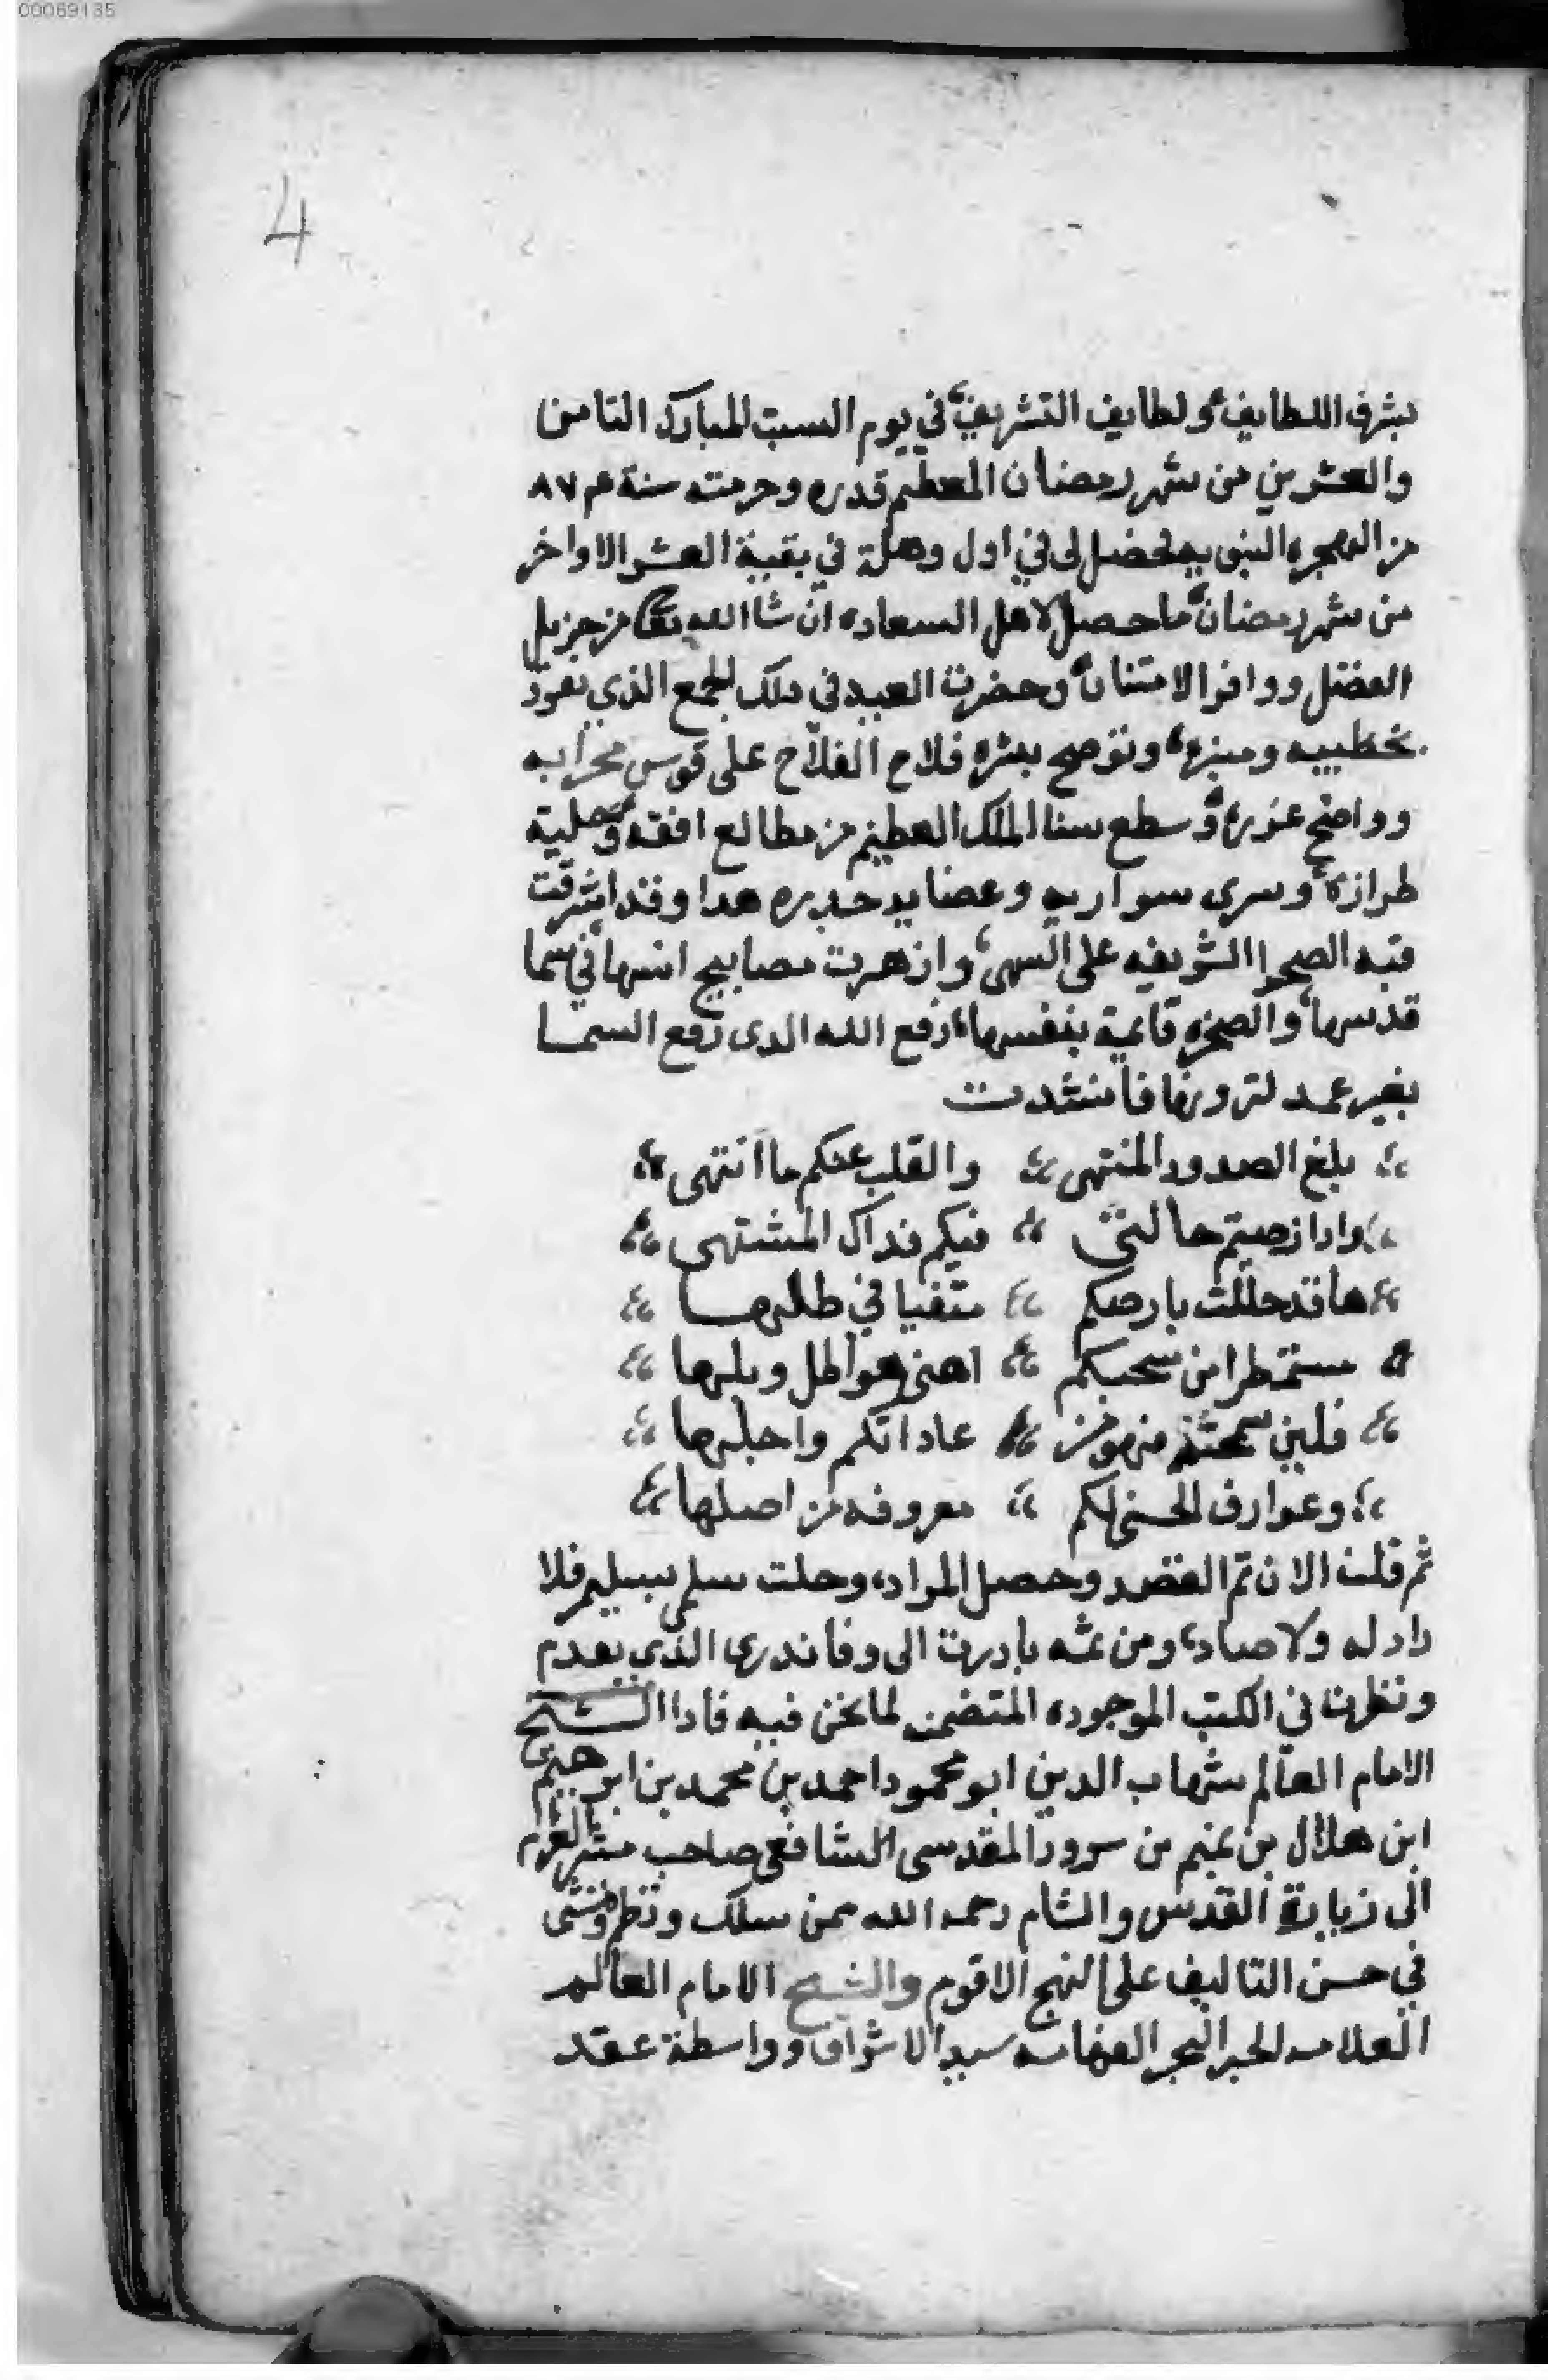 00069135
4
بشرف اللطايف ولطايف التشريف في يوم السبت المبارك الثامن
والعشرين من شهر رمضان المعظم قدره وحرمته سنة ٨٧٤
من الهجره النبويه فحصل لى في اول وهلة في بقية العشر الاواخر
من شهر رمضان ما حصل لاهل السعاده ان شا الله تعا من جزيل
الفضل ووافر الامتنان وحضرت العيد في ذلك الجمع الذي
بخطيبه ومنبره فلاح الفلاح على قوس محرابه
وواضح غرره وسطع سنا الملك العظيم من مطالع افقه
طرازه وسرى سواريه هدا وقد اشرقت
قبه الصخرا الشريفه على السهى وازهرت مصابيح انسها في سما
قدسها والصخره قايمة بنفسها رفع الله الدى رفع السما
بغير عمد ترونها فانشدت
بلغ الصدود المنتهى والقلب عنكم ما انتهى
وادا رضيتم حالتى فيكم فداك المشتهى
ها قد حللت بارضكم متفيا في ظلها
مستمطرا من سحبكم اهنى هواطل وبلها
فلين سمحتم فهو من عاداتكم واجلها
وعوارف الحسنى لكم معروفه من اصلها
ثم قلت الان تم القصد وحصل المراد وحلت سلمى فلا
راد له ولا صاد ومن ثمه بادرت الى وفا ندرى الذي تقدم
ونظرت في الكتب الموجوده المتضمنه لما نحن فيه فادا الشيخ
الامام العالم شهاب الدين ابو محمود احمد بن محمد بن ابراهيم
ابن هلال بن تميم بن سرور المقدسى الشافعى صاحب مثير الغرام
الى زيارة القدس والشام رحمه الله ممن سلك ونظم ومشى
في حسن التاليف على النهج الاقوم والشيخ الامام العالم
العلامه الحبر البحر الفهامه سيد الاشراف وواسطة عقد